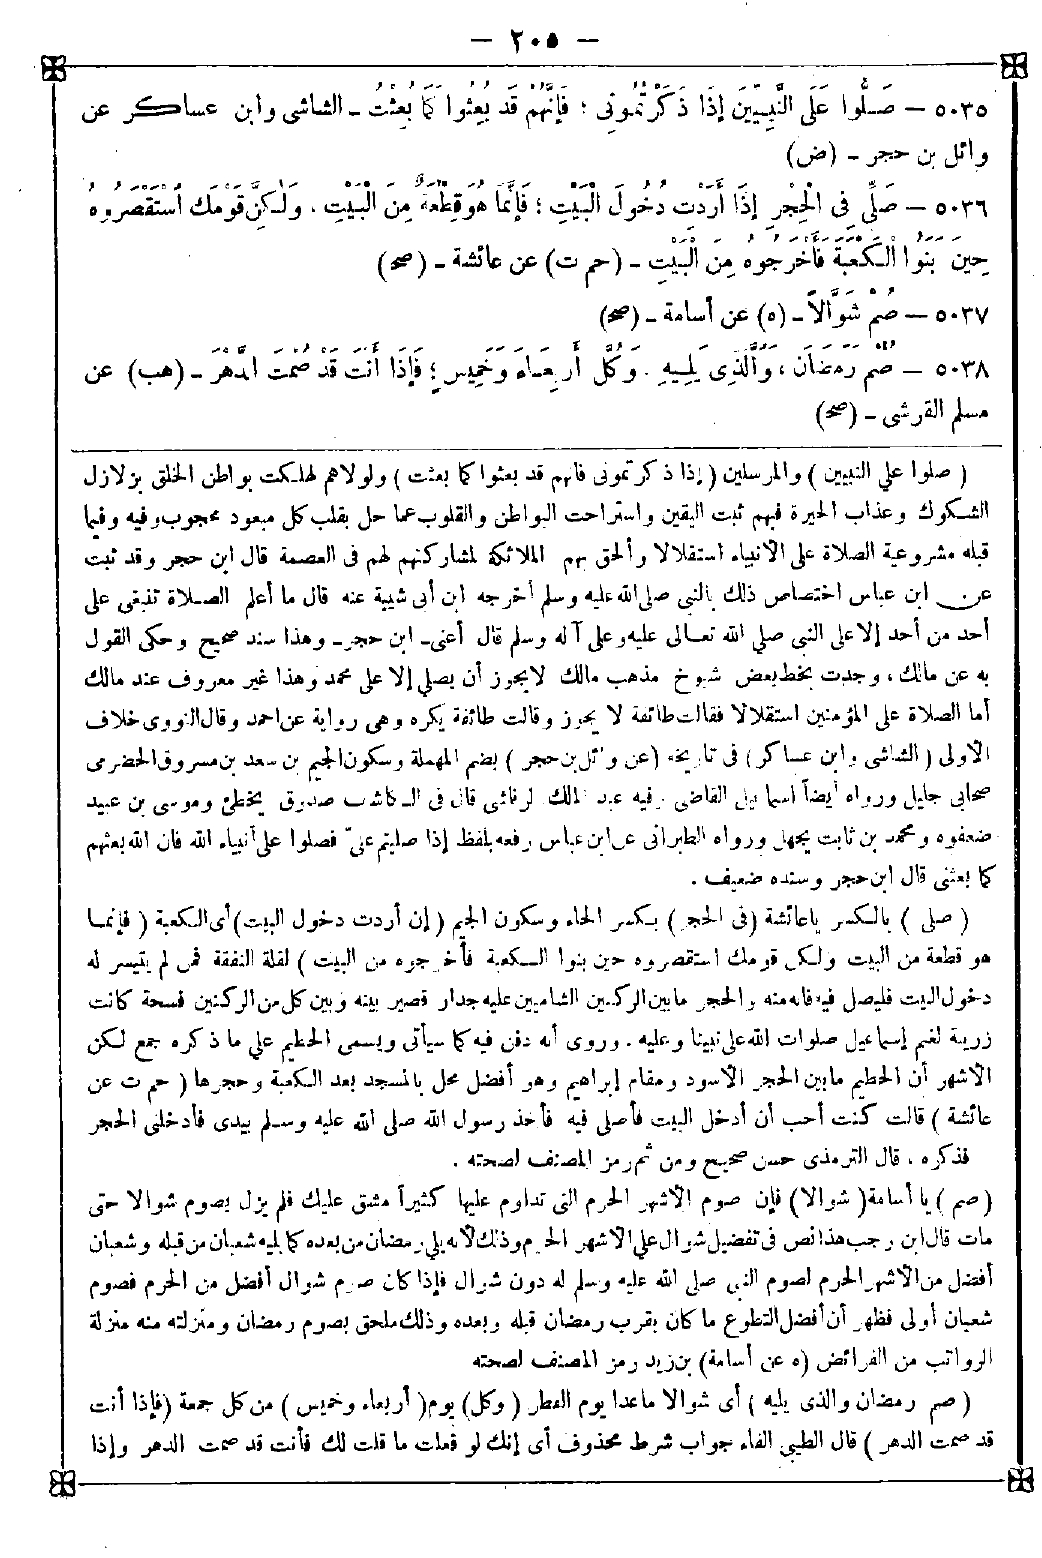 — ٢٠٥ —
٥٠٣٥ — صَلُّوا عَلَى النَّبِيِّينَ إِذَا ذَكَرْتُمُونِي ؛ فَإِنَّهُمْ قَدْ بُعِثُوا كَمَا بُعِثْتُ ـ الشاشى وابن عساكر عن
وائل بن حجر ـ (ض)
٥٠٣٦ — صَلِّي فِي الْحِجْرِ إِذَا أَرَدْتِ دُخُولَ الْبَيْتِ ؛ فَإِنَّمَا هُوَ قِطْعَةٌ مِنَ الْبَيْتِ ، وَلٰكِنَّ قَوْمَكِ اسْتَقْصَرُوهُ
حِينَ بَنَوُا الْكَعْبَةَ فَأَخْرَجُوهُ مِنَ الْبَيْتِ ـ (حم ت) عن عائشة ـ (صح)
٥٠٣٧ — صُمْ شَوَّالاً ـ (ه) عن أسامة ـ (صح)
٥٠٣٨ — صُمْ رَمَضَانَ ، وَالَّذِى يَلِيهِ ، وَكُلَّ أَرْبِعَاءَ وَخَمِيسٍ ؛ فَإِذَا أَنْتَ قَدْ صُمْتَ الدَّهْرَ ـ (هب) عن
مسلم القرشى ـ (صح)
( صلوا على النبيين ) والمرسلين ( إذا ذكرتمونى فانهم قد بعثوا كما بعثت ) ولولاهم لهلكت بواطن الخلق بزلازل
الشكوك وعذاب الحيرة فبهم ثبت اليقين واستراحت البواطن والقلوب عما حل بقلب كل مبعود محجوب وفيه وفيما
قبله مشروعية الصلاة على الأنبياء استقلالا وألحق بهم الملائكة لمشاركتهم لهم فى العصمة قال ابن حجر وقد ثبت
عن ابن عباس اختصاص ذلك بالنبي صلى الله عليه وسلم أخرجه ابن أبى شيبة عنه قال ما أعلم الصلاة تنبغى على
أحد من أحد إلا على النبي صلي الله تعالى عليه وعلى آله وسلم قال أعنى ـ ابن حجر ـ وهذا سند صحيح وحكى القول
به عن مالك ، وجدت بخط بعض شيوخ مذهب مالك لا يجوز أن يصلي إلا على محمد وهذا غير معروف عند مالك
أما الصلاة على المؤمنين استقلالا فقالت طائفة لا يجوز وقالت طائفة يكره وهى رواية عن احمد وقال النووى خلاف
الأولى ( الشاشى وابن عساكر ) فى تاريخه (عن وائل بن حجر ) بضم المهملة وسكون الجيم بن سعد بن مسروق الحضرمى
صحابى جليل ورواه أيضاً اسماعيل القاضى وفيه عبد الملك الرقاشى قال فى الكاشف صدوق يخطئ وموسى بن عبيد
ضعفوه ومحمد بن ثابت يجهل ورواه الطبرانى عن ابن عباس رفعه بلفظ إذا صليتم علىّ فصلوا على أنبياء الله فان الله بعثهم
كما بعثنى قال ابن حجر وسنده ضعيف .
( صلى ) بالكسر ياعائشة (فى الحجر ) بكسر الحاء وسكون الجيم ( إن أردت دخول البيت) أى الكعبة ( فإنما
هو قطعة من البيت ولكن قومك استقصروه حين بنوا الكعبة فأخرجوه من البيت ) لقلة النفقة فمن لم يتيسر له
دخول البيت فليصل فيه فانه منه والحجر ما بين الركنين الشاميين عليه جدار قصير بينه وبين كل من الركنين فسحة كانت
زريبة لغنم إسماعيل صلوات الله على نبينا وعليه . وروى أنه دفن فيه كما سيأتى ويسمى الحطيم علي ما ذكره جمع لكن
الأشهر أن الحطيم ما بين الحجر الأسود ومقام إبراهيم وهو أفضل محل بالمسجد بعد الكعبة وحجرها ( حم ت عن
عائشة ) قالت كنت أحب أن أدخل البيت فأصلى فيه فأخذ رسول الله صلى الله عليه وسلم بيدى فأدخلنى الحجر
فذكره ، قال الترمذى حسن صحيح ومن ثم رمز المصنف لصحته .
( صم ) يا أسامة ( شوالا) فإن صوم الأشهر الحرم التى تداوم عليها كثيراً مشق عليك فلم يزل يصوم شوالا حتى
مات قال ابن رجب هذا نص فى تفضيل شوال على الأشهر الحرم وذلك لأنه يلى رمضان من بعده كما يليه شعبان من قبله وشعبان
أفضل من الأشهر الحرم لصوم النبى صلى الله عليه وسلم له دون شوال فإذا كان صوم شوال أفضل من الحرم فصوم
شعبان أولى فظهر أن أفضل التطوع ما كان بقرب رمضان قبله وبعده وذلك ملحق بصوم رمضان ومنزلته منه منزلة
الرواتب من الفرائض (ه عن أسامة) بن زيد رمز المصنف لصحته
( صم رمضان والذى يليه ) أى شوالا ماعدا يوم الفطر ( وكل) يوم ( أربعاء وخميس ) من كل جمعة (فإذا أنت
قد صمت الدهر ) قال الطيبي الفاء جواب شرط محذوف أى إنك لو فعلت ما قلت لك فأنت قد صمت الدهر وإذا